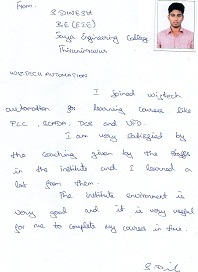 From,
S. DINESH
B.E (ECE)
Engineering College
WISTECH AUTOMATION
I joined wistech
automation for learning course like
PLC, SCADA, DCS and VFD.
I am very satisfied by
the coaching given by the staffs
in the institute and I learned a
lot from them.
The institute environment is
very good and it is very useful
for me to complete my course in time.